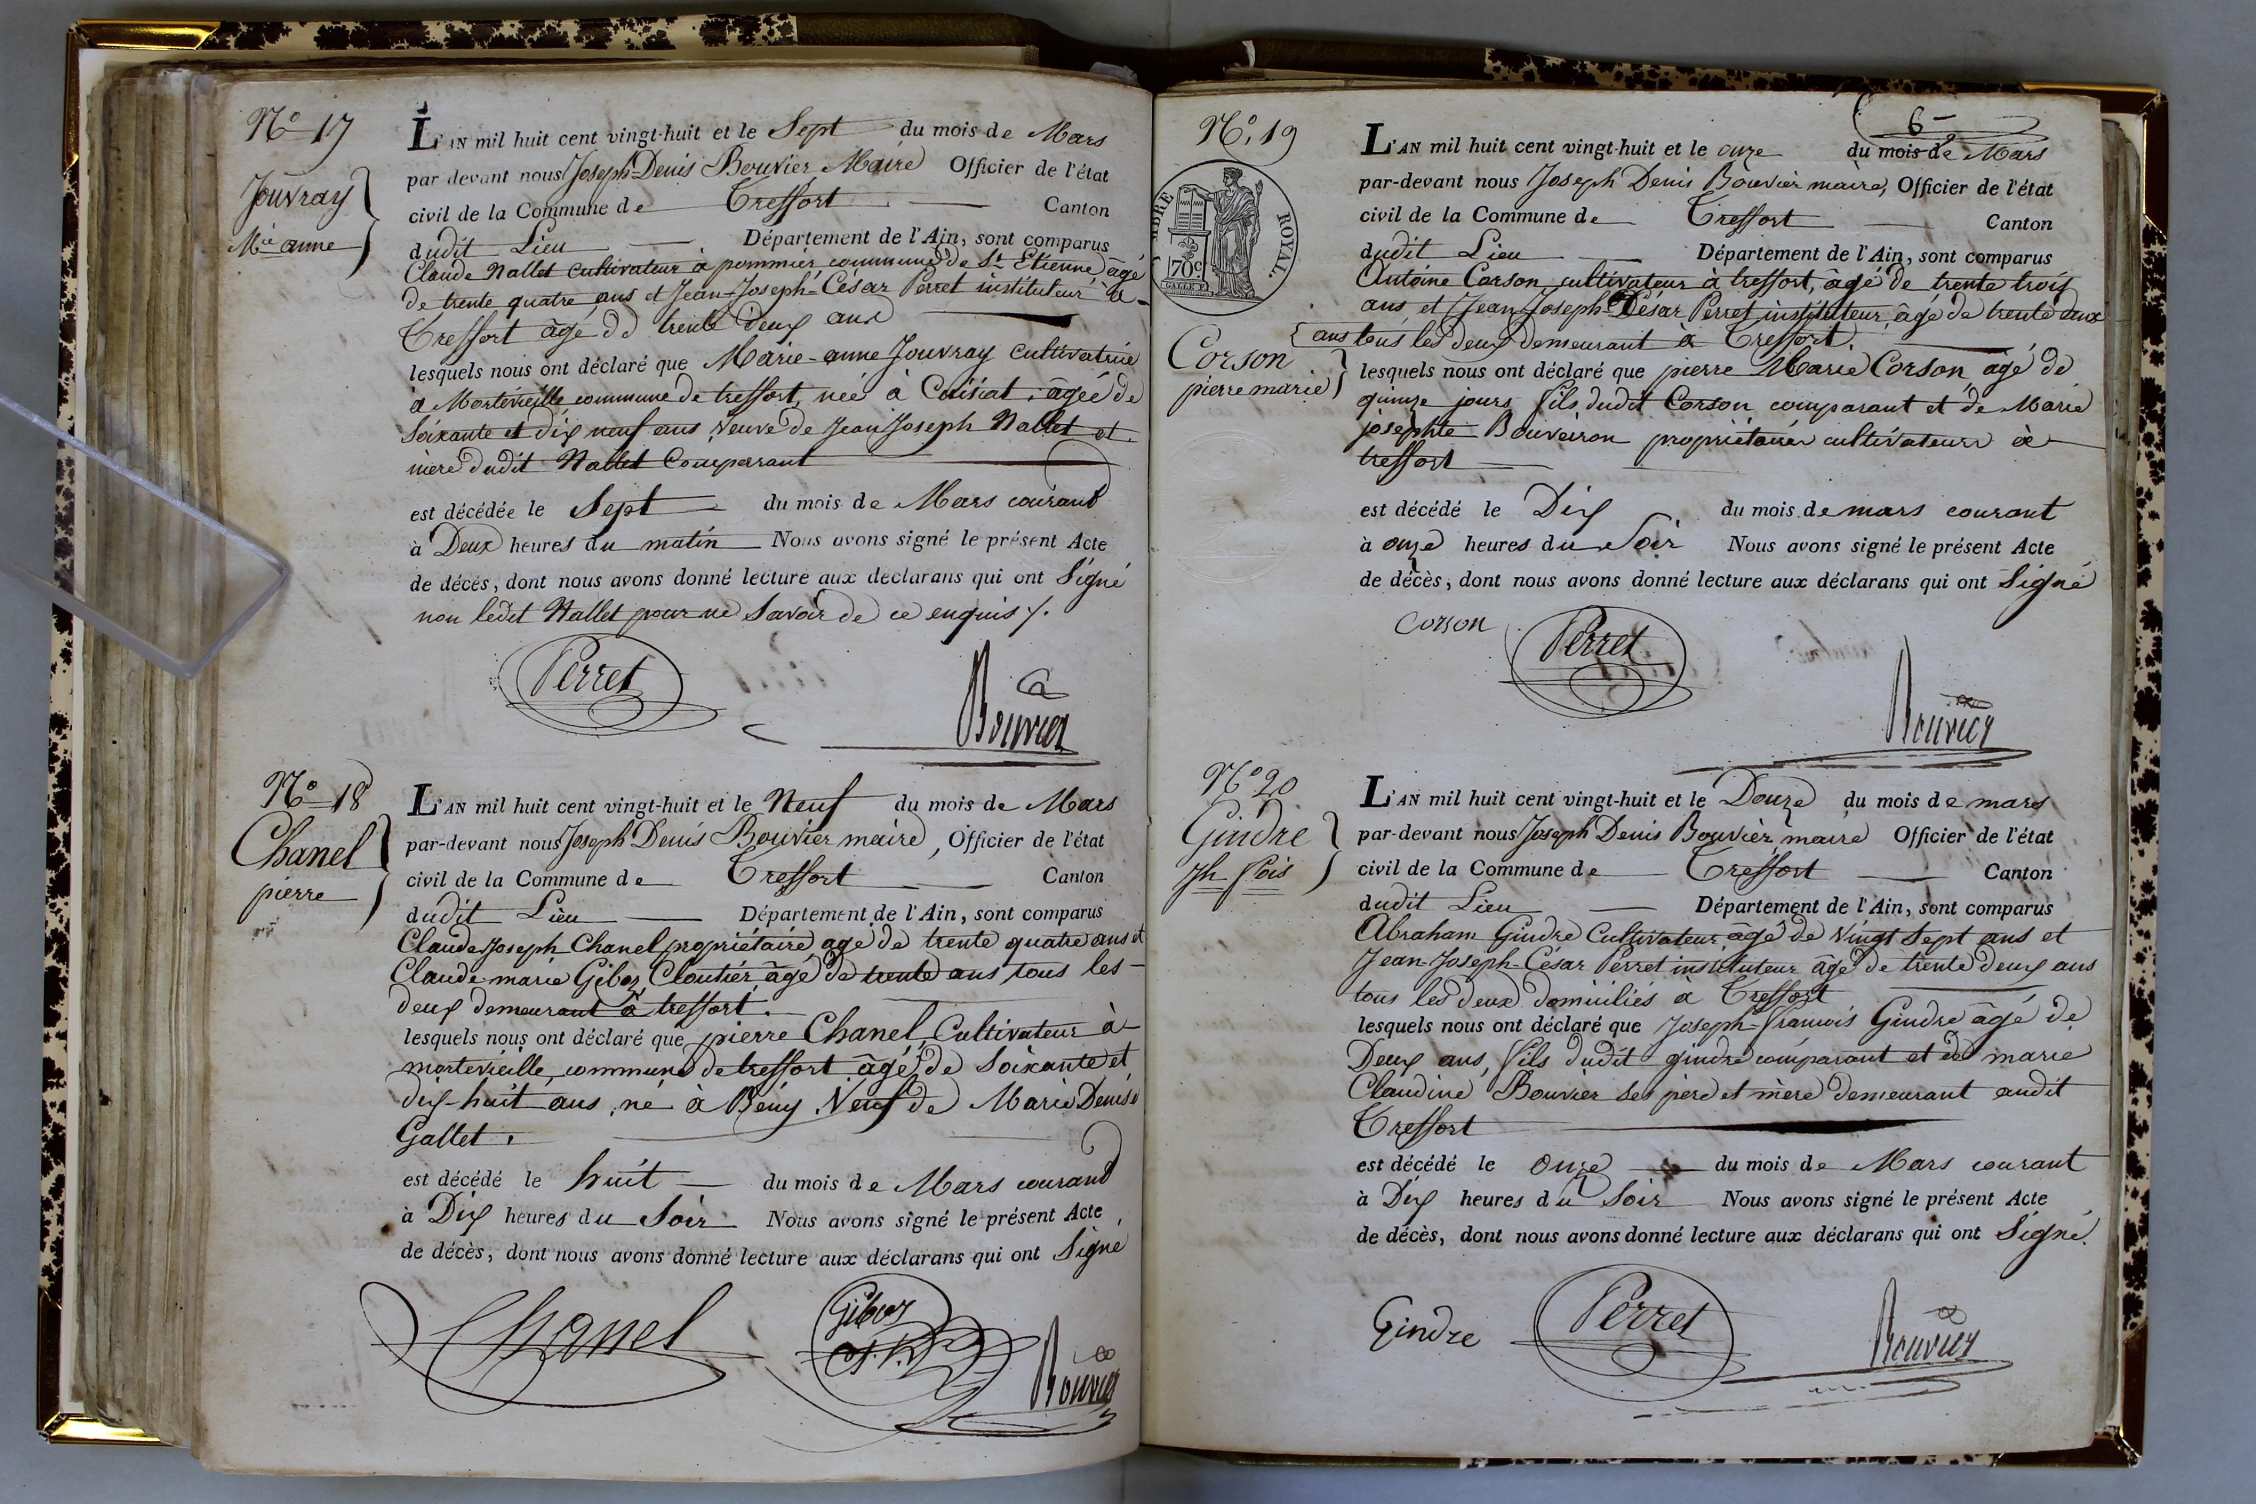 N.º 17
Jouvray
Mie anne
L'AN mil huit cent vingt-huit et le Sept du mois de Mars
par devant nous Joseph Denis Bouvier Maire Officier de l'état
civil de la Commune de Treffort Canton
dudit Lieu Département de l'Ain, sont comparus
Claude Nallet cultivateur à pommier commune de St Etienne âgé
de trente quatre ans et Jean-Joseph-César Perret instituteur à
Treffort âgé de trente deux ans
lesquels nous ont déclaré que Marie-anne Jouvray cultivatrice
à Montevieille commune de treffort, née à Cuisiat, âgée de
Soixante et dix neuf ans Veuve de Jean Joseph Nallet et
mère dudit Nallet Comparant
est décédée le Sept du mois de Mars courant
à Deux heures du matin Nous avons signé le présent Acte
de décès, dont nous avons donné lecture aux déclarans qui ont Signé
non ledit Nallet pour ne Savoir de ce enquis /.
Perret
Bouvier
N.º 18
Chanel
pierre
L'AN mil huit cent vingt-huit et le Neuf du mois de Mars
par-devant nous Joseph Denis Bouvier maire, Officier de l'état
civil de la Commune de Treffort Canton
dudit Lieu Département de l'Ain, sont comparus
Claude Joseph Chanel propriétaire agé de trente quatre ans et
Claude marie Giboz Cloutier âgé de trente ans tous les
deux demeurant à treffort.
lesquels nous ont déclaré que pierre Chanel, Cultivateur à
montevieille, commune de treffort âgé, de Soixante et
dix-huit ans, né à Bény, Veuf de Marie Denise
Gallet.
est décédé le huit du mois de Mars courant
à Dix heures du Soir Nous avons signé le présent Acte
de décès, dont nous avons donné lecture aux déclarans qui ont Signé
Chanel
Giboz
Bouvier
6
N.º 19
TIMBRE ROYAL.
70c
Corson
pierre marie
L'AN mil huit cent vingt-huit et le onze du mois de Mars
par-devant nous Joseph Denis Bouvier maire, Officier de l'état
civil de la Commune de Treffort Canton
dudit Lieu Département de l'Ain, sont comparus
Antoine Corson, cultivateur à treffort, âgé de trente trois
ans, et Jean Joseph César Perret instituteur, âgé de trente deux
ans tous les deux demeurant à Treffort.
lesquels nous ont déclaré que pierre Marie Corson âgé de
quinze jours fils dudit Corson comparant et de Marie
josephte Bouveiron propriétaires cultivateurs à
treffort
est décédé le Dix du mois de mars courant
à onze heures du Soir Nous avons signé le présent Acte
de décès, dont nous avons donné lecture aux déclarans qui ont Signé
corson
Perret
Bouvier
N.º 20
Gindre
Jh fcois
L'AN mil huit cent vingt-huit et le Douze du mois de mars
par-devant nous Joseph Denis Bouvier, maire Officier de l'état
civil de la Commune de Treffort Canton
dudit Lieu Département de l'Ain, sont comparus
Abraham Gindre Cultivateur âgé de Vingt Sept ans et
Jean-Joseph-César Perret instituteur âgé de trente deux ans
tous les deux domiciliés à Treffort
lesquels nous ont déclaré que Joseph-francois Gindre âgé de
Deux ans, fils dudit gindre comparant et de marie
Claudine Bouvier ses père et mère demeurant audit
Treffort
est décédé le onze du mois de Mars courant
à Dix heures du Soir Nous avons signé le présent Acte
de décès, dont nous avons donné lecture aux déclarans qui ont Signé.
Gindre
Perret
Bouvier